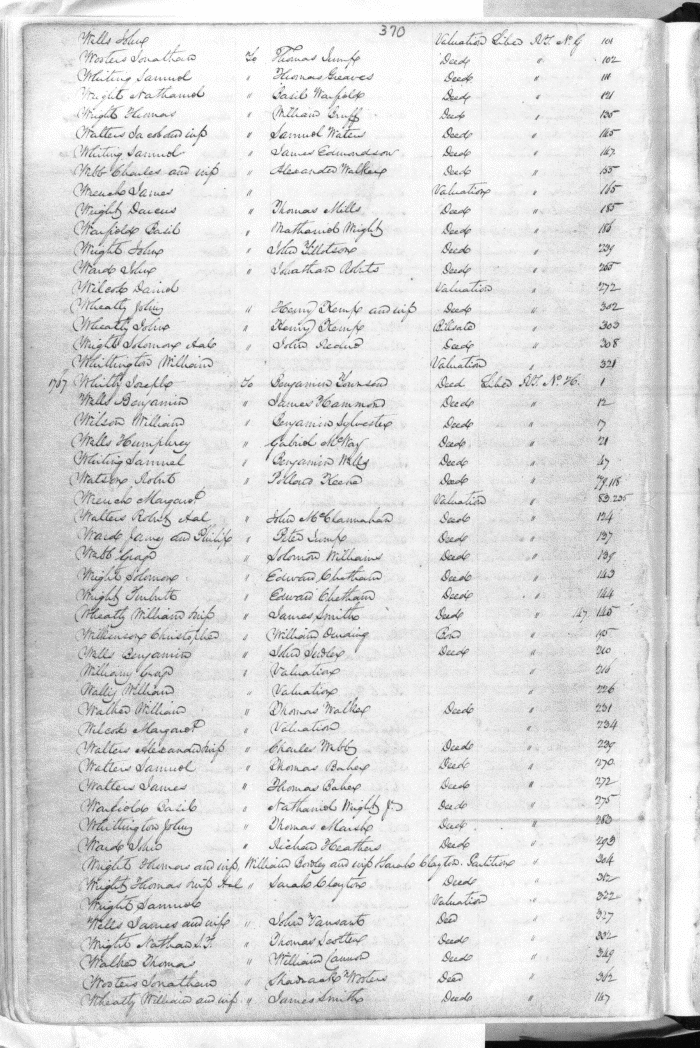 370
Wells John Valuation Liber R.T. No. G 101
Wosters Jonathan To Thomas Jump Deed " 102
Whiting Samuel " Thomas Greaves Deed " 111
Wright Nathaniel " Basil Warfield Deed " 121
Wright Thomas " William Deed " 135
Walters Jacob and wife " Samuel Waters Deed " 165
Whiting Samuel " James Edmondson Deed " 167
Webb Charles and wife " Alexander Walters Deed " 155
Wrench James " Valuation " 165
Wright " Thomas Mills Deed " 185
Warfield Basil " Nathaniel Wright Deed " 186
Wright John " John Tillotson Deed " 239
Ward John " Jonathan Roberts Deed " 265
Wilcok Daniel Valuation " 272
Wheatly John " Henry Kemp and wife Deed " 302
Wheatly John " Henry Kemp Deed " 303
Wright Solomon &al " John Deed " 308
Whittington William Valuation " 321
1787 Whitby Joseph To Benjamin Deed Liber R.T. No. H. 1
Wells Benjamin " James Hammond Deed " 12
Wilson William " Benjamin Sylvester Deed " 17
Wells Humphrey " Gabriel McWay Deed " 21
Whiting Samuel " Benjamin Wells Deed " 47
Watson Robert " Pollard Keene Deed " 79.118
Wrench Margaret " Valuation " 83.225
Walters Robert &al " John McClannahan Deed " 124
Ward James and Philip " Peter Jump Deed " 137
Webb " Solomon Williams Deed " 139
Wright Solomon " Edward Chetham Deed " 143
Wright " Edward Chetham Deed " 144
Wheatly William wife " James Smith Deed " 147 145
Wilkenson Christopher " William Bond " 195
Wells Benjamin " John Deed " 210
Williams " Valuation " 216
William " Valuation " 226
Walker William " Thomas Walker Deed " 231
Wilcok Margaret " Valuation " 234
Walters Alexander wife " Charles Webb Deed " 239
Walters Samuel " Thomas Baker Deed " 270
Walters James " Thomas Baker Deed " 272
Warfield Basil " Nathaniel Wright Jr Deed " 275
Whittington John " Thomas Marsh Deed " 280
Ward John " Richard Heathers Deed " 293
Wright Thomas and wife, William and wife Sarah Clayton Partition " 304
Wright Thomas wife &al " Sarah Clayton Deed " 312
Wright Samuel Valuation " 322
Wells James and wife " John Vansant Deed " 327
Wright Nathan S.T. " Thomas Deed " 332
Walker Thomas " William Cannon Deed " 349
Wosters Jonathan " Shadrack Wosters Deed " 362
Wheatly William and wife " James Smith Deed " 147